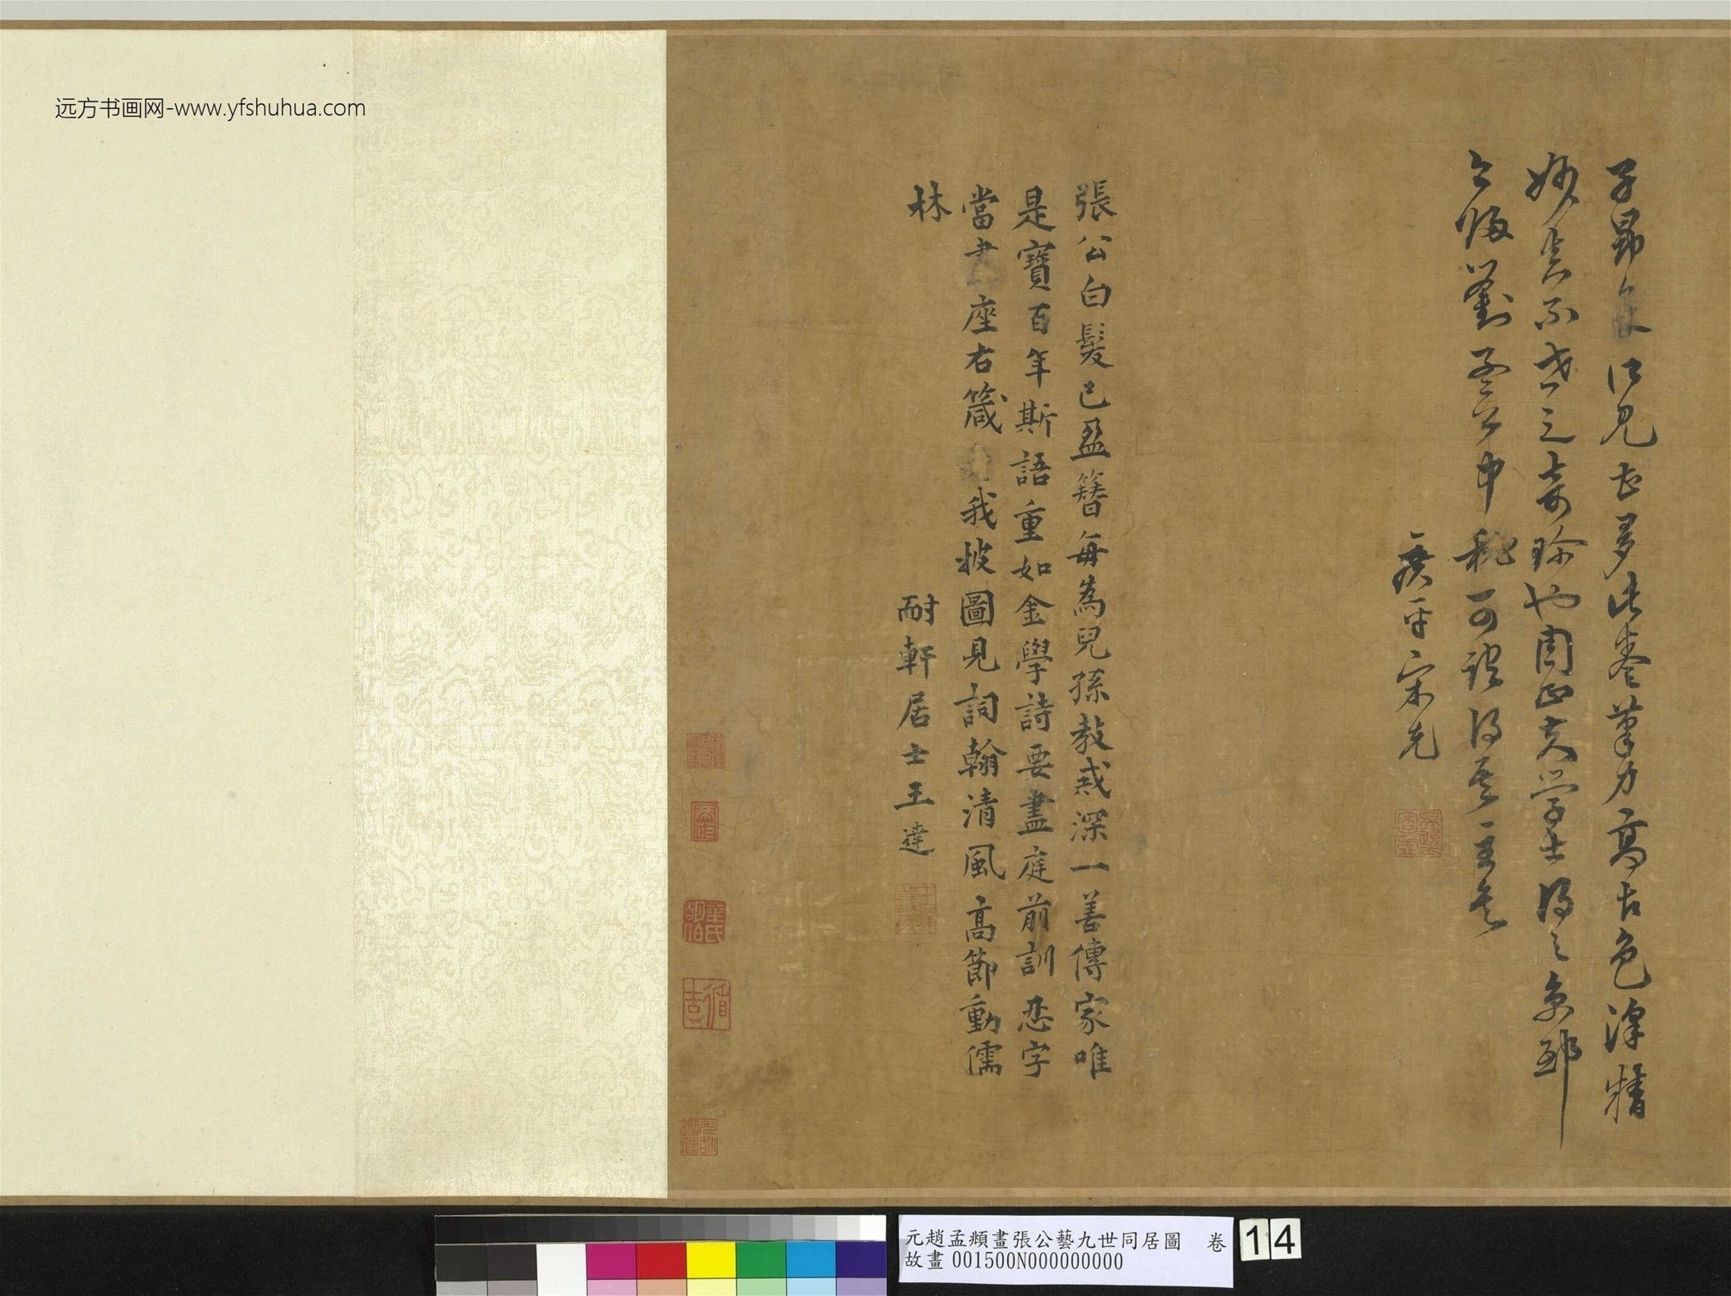 子昂畫江見甚多此卷筆力高古色澤精
妙真不世之奇珍也周正夫學士得之京邸
今歸劉 中秘可謂得其主矣
廣平宋克
張公白髮已盈簪每為兒孫教戒深一善傳家唯
是寶百年斯語重如金學詩要盡庭前訓忍字
當書座右箴 我披圖見詞翰清風高節動儒
林
耐軒居士王達
远方书画网-www.yfshuhua.com
元趙孟頫畫張公藝九世同居圖 卷
故畫 001500N000000000
14